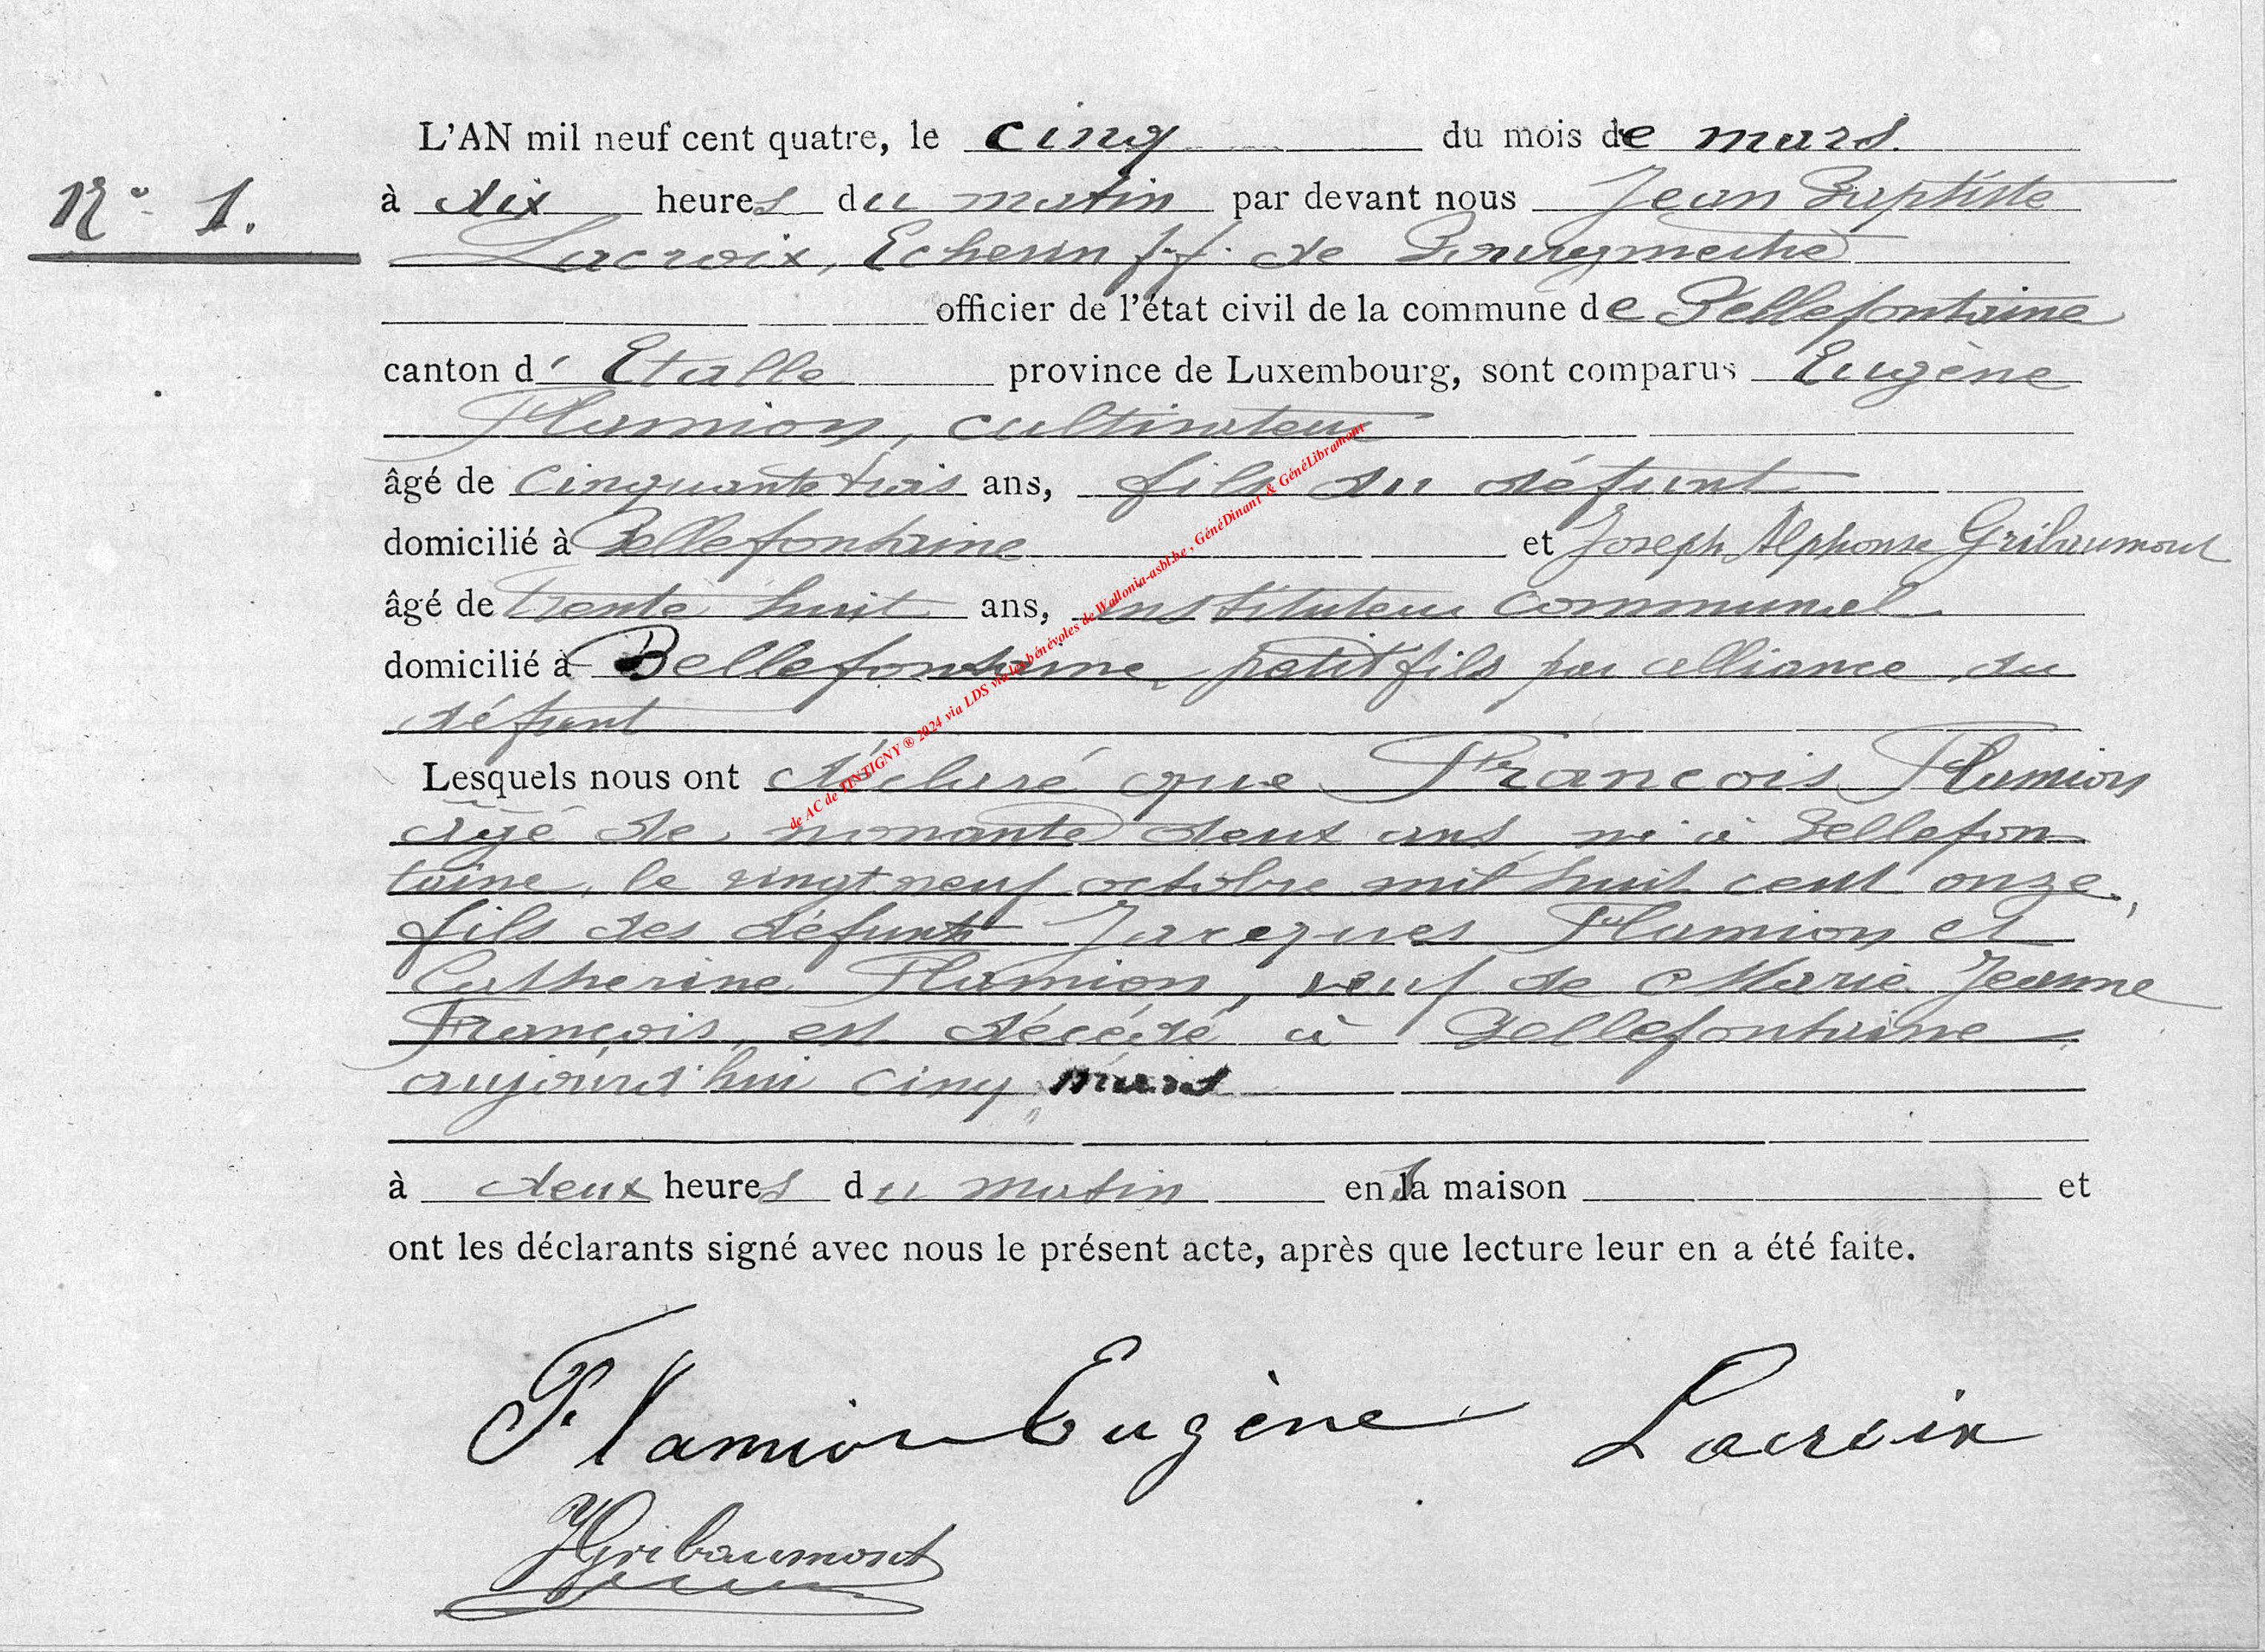 N° 1.
L'AN mil neuf cent quatre, le cinq du mois de mars.
à dix heures du matin par devant nous Jean Baptiste
Lacroix, Echevin f.f. de Bourgmestre
officier de l'état civil de la commune de Bellefontaine
canton d' Etalle province de Luxembourg, sont comparus Eugène
Flamion, cultivateur
âgé de cinquante trois ans, fils du défunt
domicilié à Bellefontaine et Joseph Alphonse Gribaumont
âgé de trente huit ans, instituteur communal
domicilié à Bellefontaine, petit fils par alliance du
défunt
Lesquels nous ont déclaré que François Flamion
âgé de nonante deux ans, né à Bellefon
taine, le vingt neuf octobre mil huit cent onze,
fils des défunts Jacques Flamion et
Catherine Flamion, veuf de Marie Jeanne
François, est décédé à Bellefontaine
aujourd'hui cinq mars
à deux heures du matin en sa maison et
ont les déclarants signé avec nous le présent acte, après que lecture leur en a été faite.
Flamion Eugène Lacroix
JGribaumont
de AC de TINTIGNY ® 2024 via LDS via les bénévoles de Wallonia-asbl.be, GénéDinant & GénéLibramont